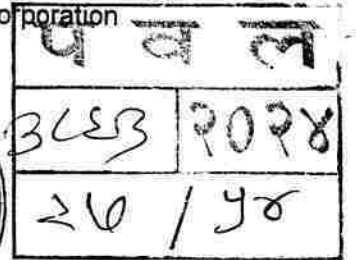 orporation
प व ल
३८६३ २०२४
२७ / ५४